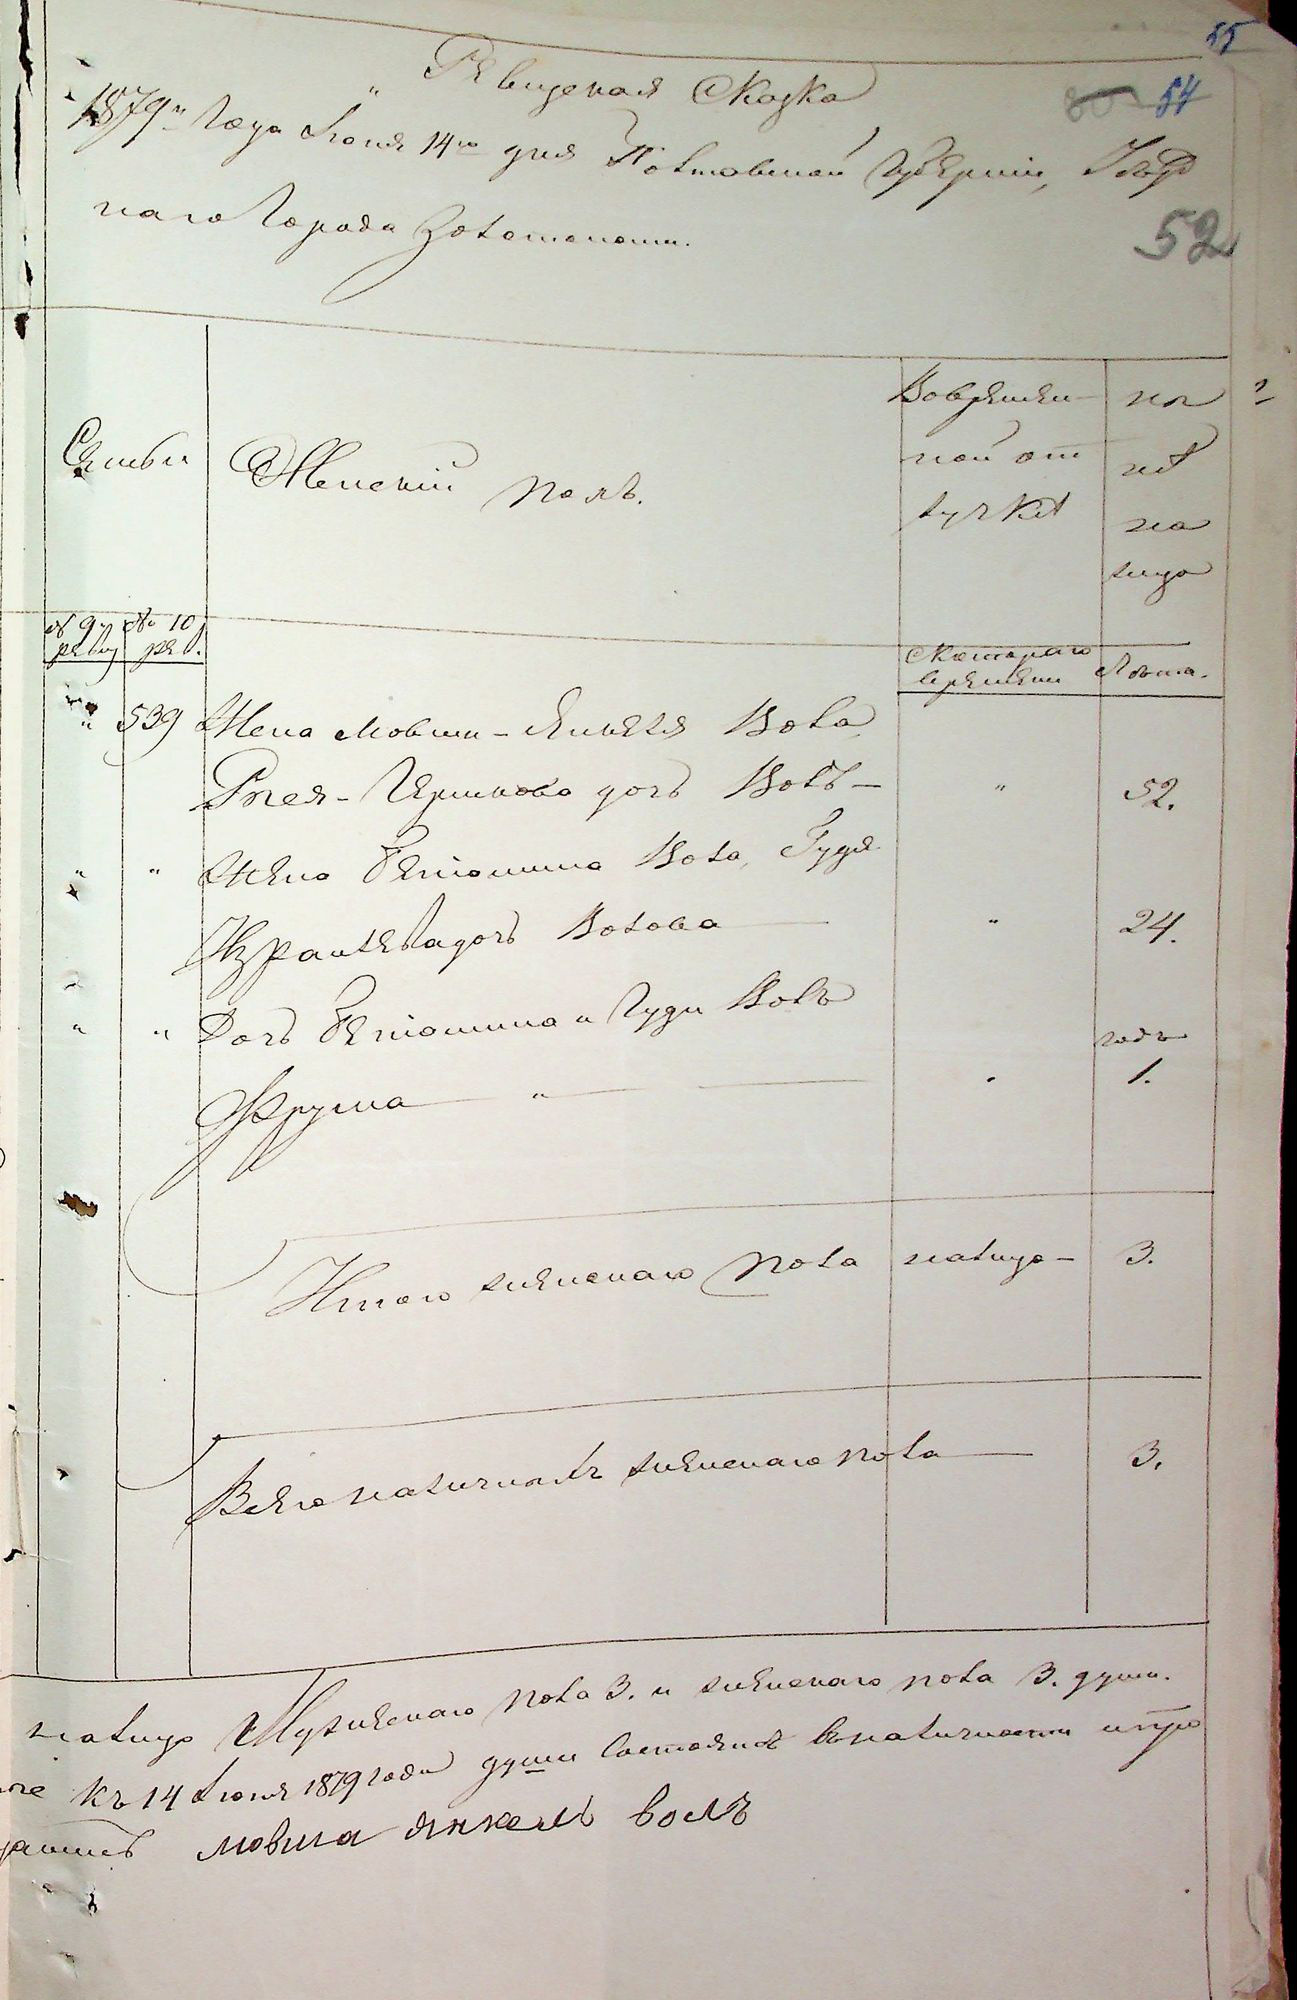 55
Ревизская Сказка
54
1879го Года Июня 14го дня Полтавской Губернiи, Уезд
наго Города Золотоноши.
52
Семьи
Женскiй полъ.
Вовремен
ной от
лучкѣ
ны
нѣ
на
лицо
№ 9й ревиз
№ 10 рев.
Скотораго времени
Лѣта.
" 539 Жена Мовши-Янкеля Вола,
Рися-Гершкова дочь Волъ — " 52.
" " Жена Бенiомина Вола, Гудя
Израилева дочь Волова — " 24.
" " Дочь Бенiомина и Гуди Волъ
годъ
Фрума — " — 1.
Итого женскаго пола налицо — 3.
Всего наличныхъ женскаго пола — 3.
налицо Мужескаго пола 3. и женскаго пола 3. души.
къ 14 Июня 1879 года души Состоянiе вналичности
мовша янкель волъ